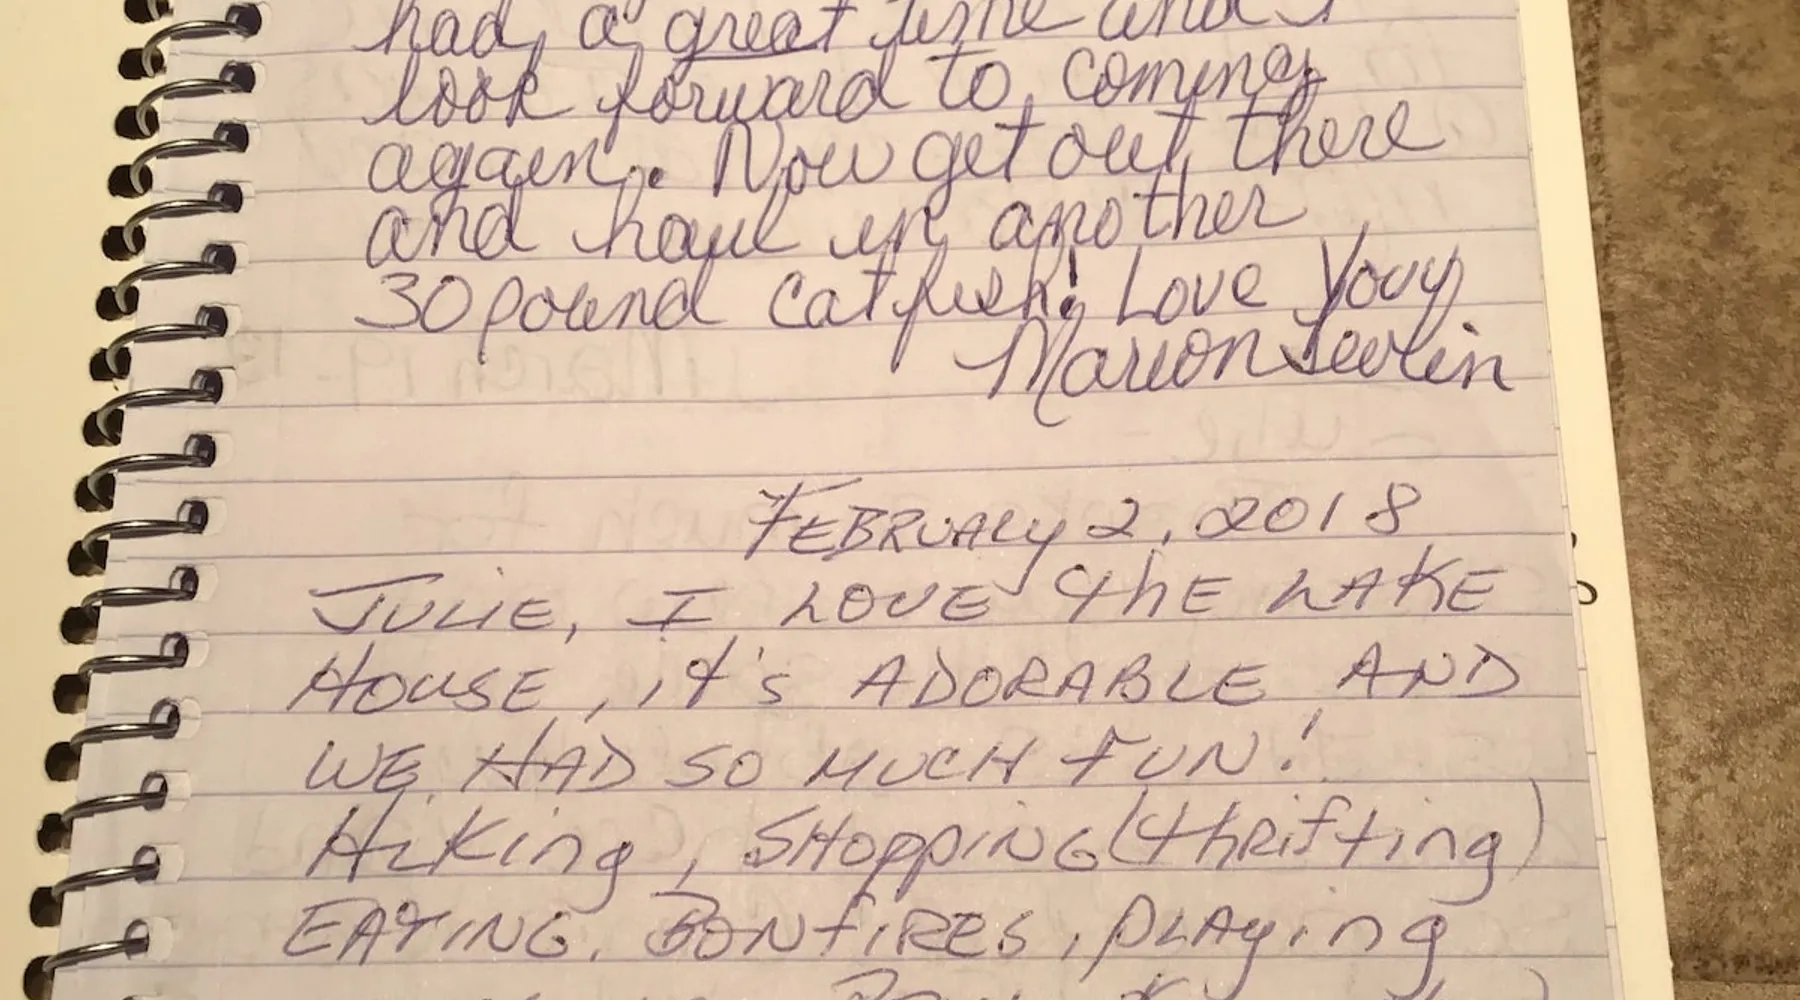 had a great time and I
look forward to coming
again. Now get out there
and haul in another
30 pound catfish! Love Youy
Marion
FEBRUARY 2, 2018
JULIE, I LOVE thE LAKE
HOUSE, it's ADORABLE AND
WE HAD SO MUCH FUN!
HiKing, SHOppiNG (thRifting)
EATING, BONfiRES, pLAying